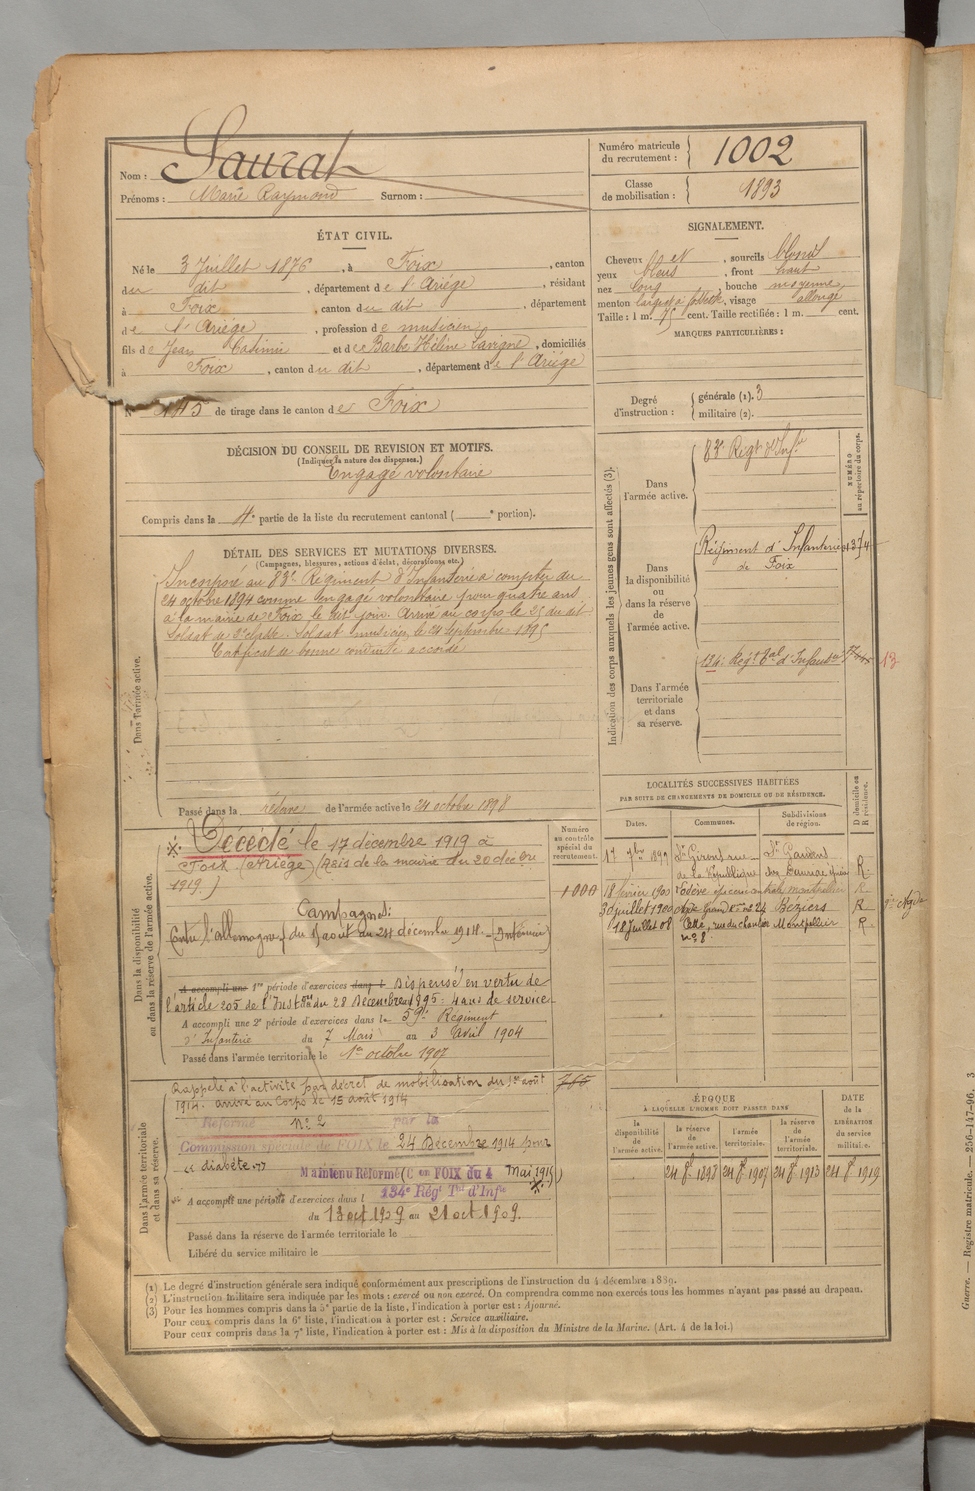 Nom : Saurat
Prénoms : Marie Raymond Surnom :
Numéro matricule du recrutement : 1002
Classe de mobilisation : 1893
ÉTAT CIVIL.
Né le 3 Juillet 1876, à Foix, canton
du dit, département de l'Ariège, résidant
à Foix, canton du dit, département
de l'Ariège, profession de musicien
fils de Jean Casimir et de Barbe Hélène Lavigne, domiciliés
à Foix, canton du dit, département de l'Ariège
N° de tirage dans le canton de Foix
SIGNALEMENT.
Cheveux et, sourcils blond
yeux bleus, front haut
nez long, bouche moyenne
menton large à fossette, visage allongé
Taille : 1 m. 75 cent. Taille rectifiée : 1 m. cent.
MARQUES PARTICULIÈRES :
Degré d'instruction : générale (1). 3
militaire (2).
DÉCISION DU CONSEIL DE REVISION ET MOTIFS.
(Indiquer la nature des dispenses.)
Engagé volontaire
Compris dans la 4e partie de la liste du recrutement cantonal ( e portion).
DÉTAIL DES SERVICES ET MUTATIONS DIVERSES.
(Campagnes, blessures, actions d'éclat, décorations, etc.)
Dans l'armée active.
Incorporé au 83e Régiment d'Infanterie à compter du
24 octobre 1894 comme engagé volontaire pour quatre ans
à la mairie de Foix le dit jour. Arrivé au corps le 25 du dit
Soldat de 2e classe. Soldat musicien le 24 Septembre 1895
Certificat de bonne conduite accordé
Passé dans la réserve de l'armée active le 24 octobre 1898
Indication des corps auxquels les jeunes gens sont affectés (3).
NUMÉRO au répertoire du corps.
Dans l'armée active.
83e Régt d'Infie
Dans la disponibilité ou dans la réserve de l'armée active.
Régiment d'Infanterie
de Foix
Dans l'armée territoriale et dans sa réserve.
134e Régt Tal d'Infanterie
13
LOCALITÉS SUCCESSIVES HABITÉES
PAR SUITE DE CHANGEMENTS DE DOMICILE OU DE RÉSIDENCE.
Dates. Communes. Subdivisions de région. D domicile ou R résidence.
17 7bre 1899 St Girons rue de la République St Gaudens R
18 février 1900 Lodève R
30 juillet 1900 Béziers R
18 Juillet 08 Cette, Montpellier R
n° 8
Dans la disponibilité ou dans la réserve de l'armée active.
Numéro au contrôle spécial du recrutement.
Décédé le 17 décembre 1919 à
Foix (Ariège) (Avis de la mairie du 20 décbre
1919.)
1000
Campagnes:
Contre l'Allemagne du 15 août au 24 décembre 1914 - (Intérieur)
A accompli une 1re période d'exercices dans l Dispensé en vertu de
l'article 205 de l'Instron du 28 Décembre 1895 : 4 ans de service
A accompli une 2e période d'exercices dans le 59e Régiment
d'Infanterie du 7 Mars au 3 Avril 1904
Passé dans l'armée territoriale le 1er octobre 1907
Dans l'armée territoriale et dans sa réserve.
Rappelé à l'activité par décret de mobilisation du 1er août
1914. arrivé au Corps le 15 août 1914
Réformé n° 2 par la
Commission spéciale de FOIX le 24 Décembre 1914 pour
« diabète »
Maintenu Réformé (C on FOIX du 4 Mai 1915)
A accompli une période d'exercices dans l 134e Régt Tal d'Infie
du 13 oct 1909 au 21 oct. 1909.
Passé dans la réserve de l'armée territoriale le
Libéré du service militaire le
ÉPOQUE
À LAQUELLE L'HOMME DOIT PASSER DANS
la disponibilité de l'armée active. la réserve de l'armée active. l'armée territoriale. la réserve de l'armée territoriale.
DATE de la LIBÉRATION du service militaire.
24 8bre 1898 24 8bre 1907 24 8bre 1913 24 8bre 1919
(1) Le degré d'instruction générale sera indiqué conformément aux prescriptions de l'instruction du 4 décembre 1889.
(2) L'instruction militaire sera indiquée par les mots : exercé ou non exercé. On comprendra comme non exercés tous les hommes n'ayant pas passé au drapeau.
(3) Pour les hommes compris dans la 5e partie de la liste, l'indication à porter est : Ajourné.
Pour ceux compris dans la 6e liste, l'indication à porter est : Service auxiliaire.
Pour ceux compris dans la 7e liste, l'indication à porter est : Mis à la disposition du Ministre de la Marine. (Art. 4 de la loi.)
Guerre. — Registre matricule. — 256-147-96. 3